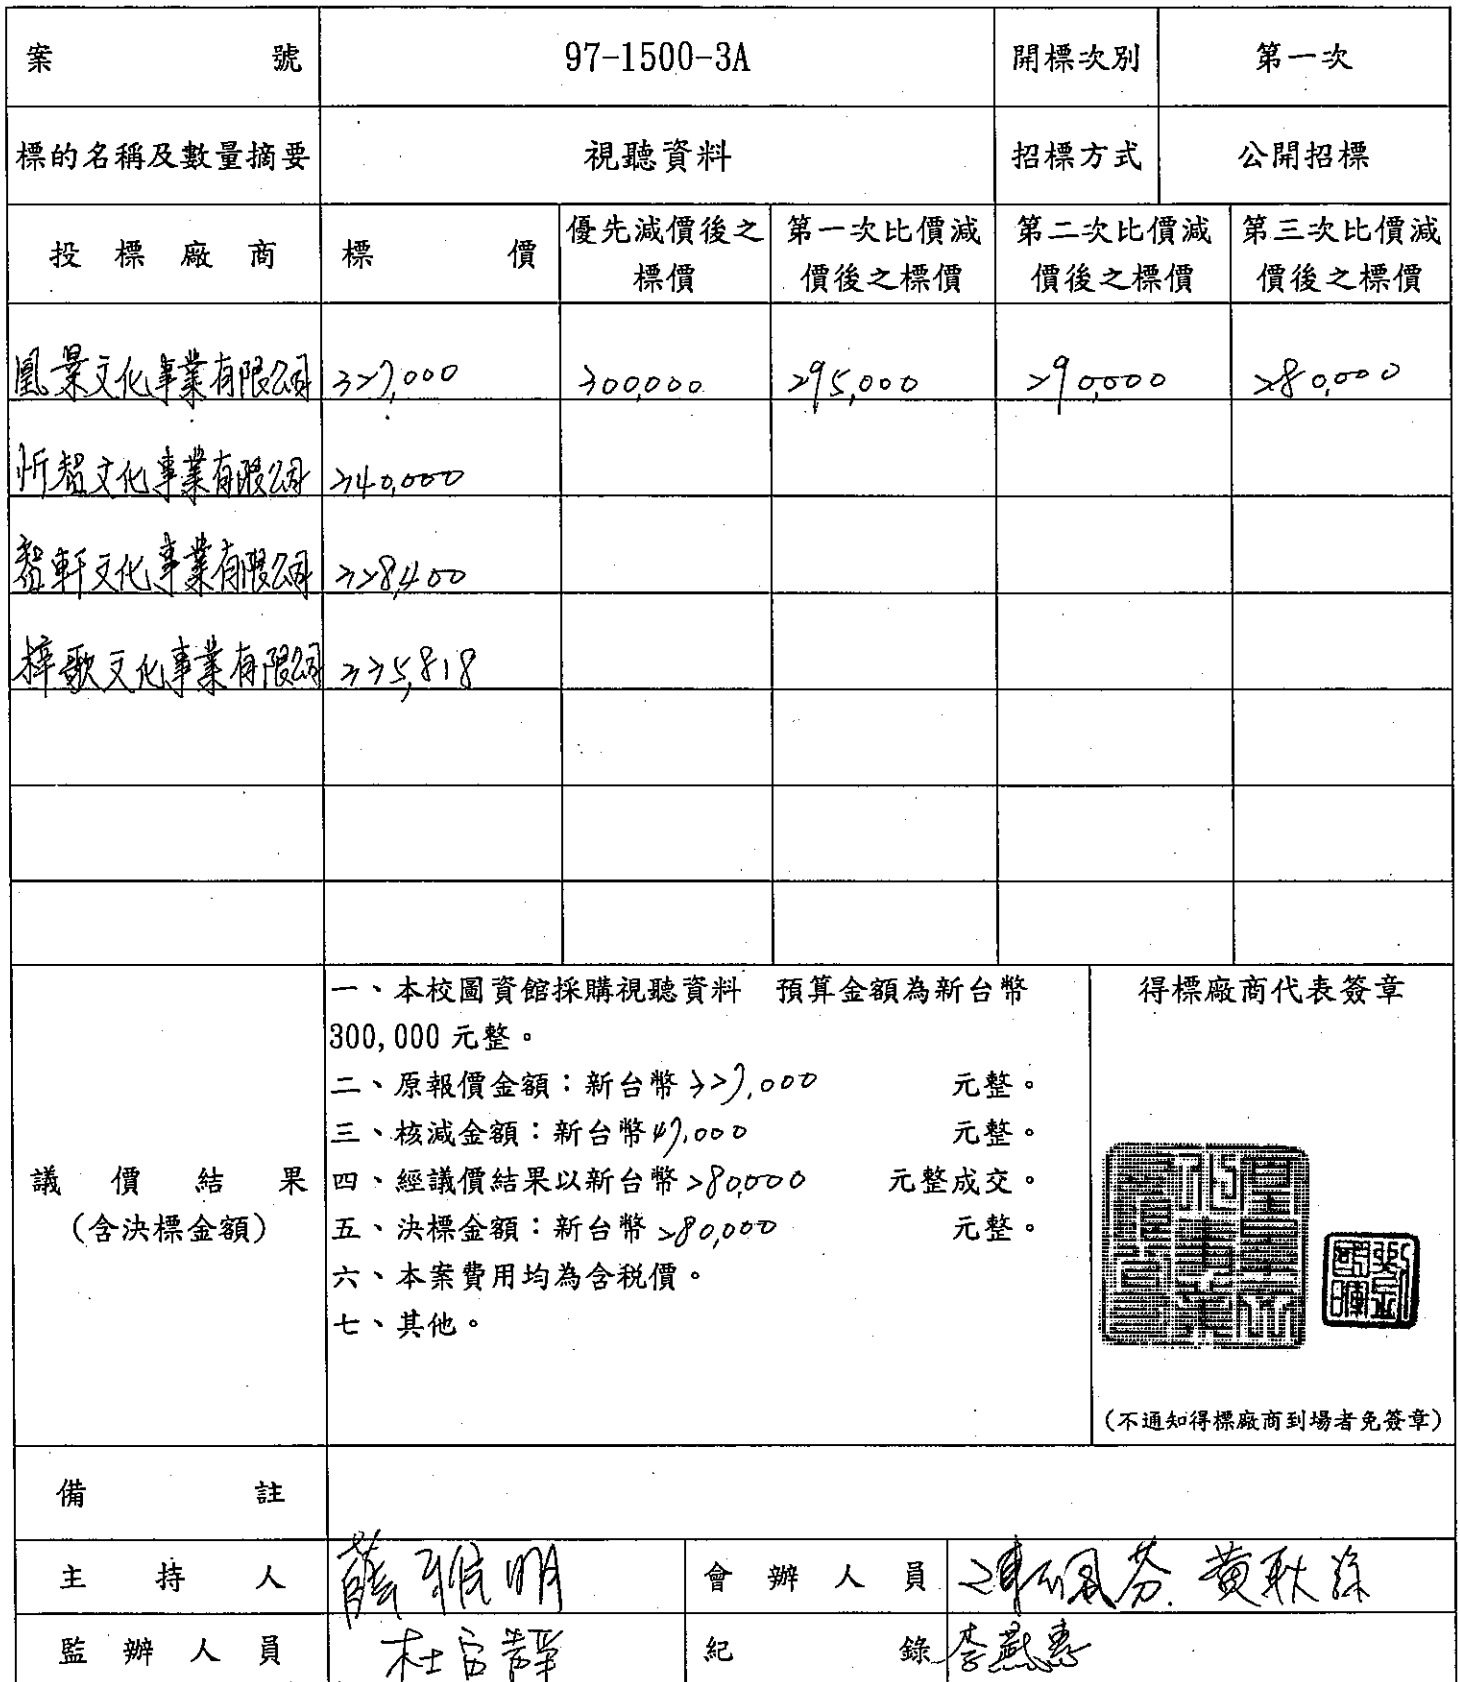 案號 97-1500-3A 開標次別 第一次
標的名稱及數量摘要 視聽資料 招標方式 公開招標
投標廠商 標價 優先減價後之標價 第一次比價減價後之標價 第二次比價減價後之標價 第三次比價減價後之標價
凰景文化事業有限公司 327,000 300,000 295,000 290,000 280,000
忻智文化事業有限公司 340,000
磬軒文化事業有限公司 328,400
梓歌文化事業有限公司 335,818
一、本校圖資館採購視聽資料 預算金額為新台幣
300,000 元整。
二、原報價金額：新台幣 327,000 元整。
三、核減金額：新台幣 47,000 元整。
議價結果 四、經議價結果以新台幣 280,000 元整成交。
(含決標金額) 五、決標金額：新台幣 280,000 元整。
六、本案費用均為含稅價。
七、其他。
得標廠商代表簽章
(不通知得標廠商到場者免簽章)
備註
主持人 薛雅明 會辦人員 陳佩芬 黃耿
監辦人員 杜宜靜 紀錄 李燕惠